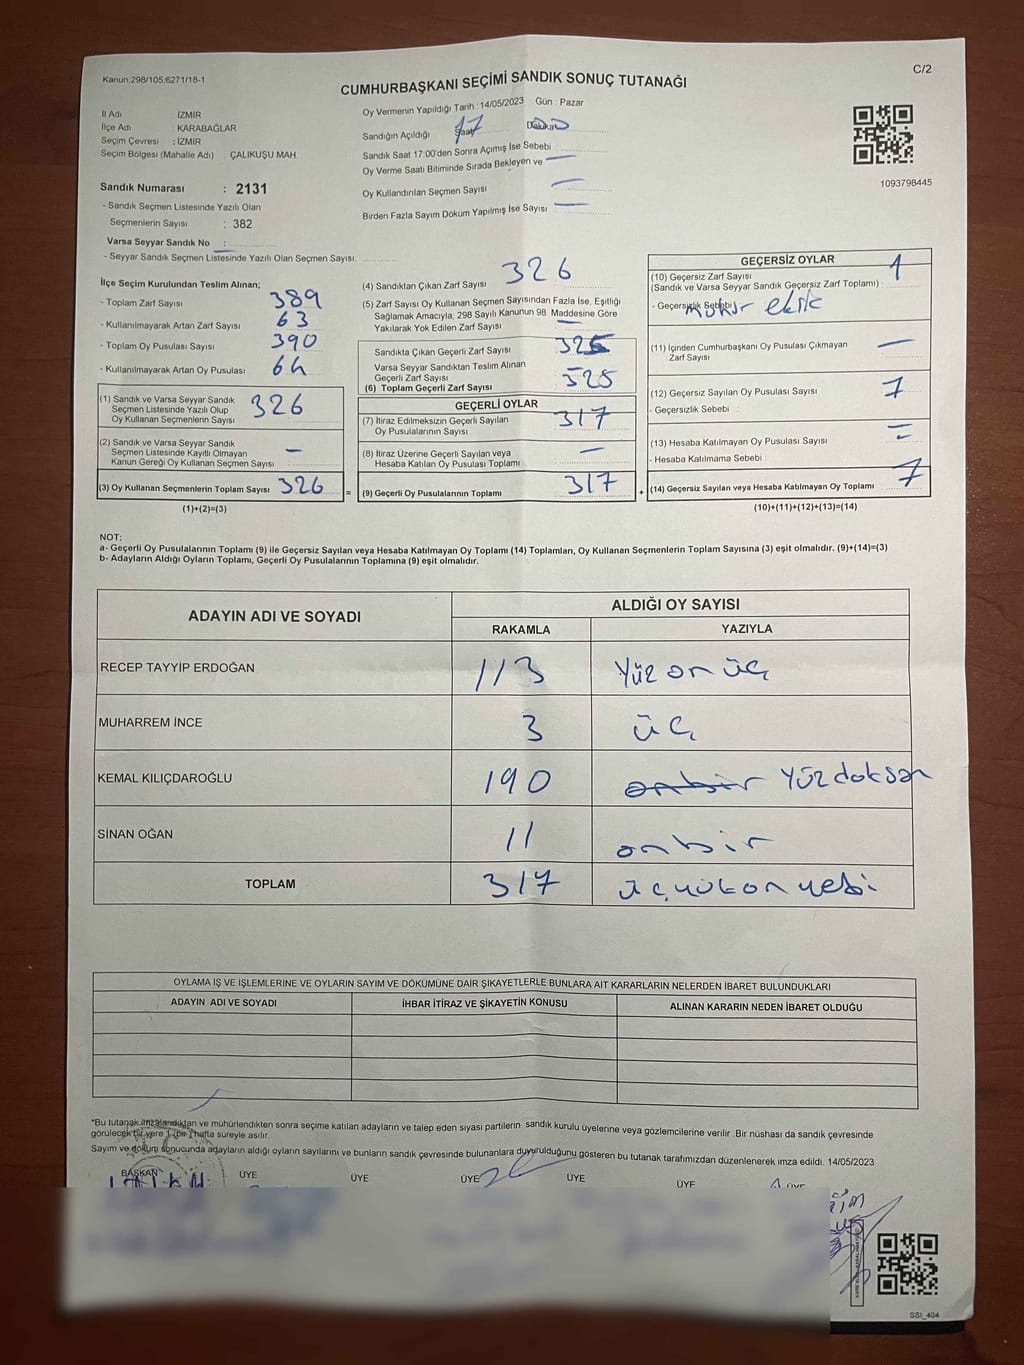 Kanun:298/105.6271/18-1
C/2
CUMHURBAŞKANI SEÇİMİ SANDIK SONUÇ TUTANAĞI
İl Adı İZMİR
İlçe Adı : KARABAĞLAR
Seçim Çevresi : İZMİR
Seçim Bölgesi (Mahalle Adı) ÇALIKUŞU MAH.
Sandık Numarası : 2131
- Sandık Seçmen Listesinde Yazılı Olan
Seçmenlerin Sayısı : 382
Varsa Seyyar Sandık No :
- Seyyar Sandık Seçmen Listesinde Yazılı Olan Seçmen Sayısı:
Oy Vermenin Yapıldığı Tarih : 14/05/2023 Gün : Pazar
Sandığın Açıldığı Saat 17 Dakika 00
Sandık Saat 17:00'den Sonra Açımış İse Sebebi :
Oy Verme Saati Bitiminde Sırada Bekleyen ve —
Oy Kullandırılan Seçmen Sayısı —
Birden Fazla Sayım Döküm Yapılmış İse Sayısı —
1093798445
İlçe Seçim Kurulundan Teslim Alınan;
- Toplam Zarf Sayısı 389
- Kullanılmayarak Artan Zarf Sayısı 63
- Toplam Oy Pusulası Sayısı 390
- Kullanılmayarak Artan Oy Pusulası 64
(1) Sandık ve Varsa Seyyar Sandık
Seçmen Listesinde Yazılı Olup
Oy Kullanan Seçmenlerin Sayısı 326
(2) Sandık ve Varsa Seyyar Sandık
Seçmen Listesinde Kayıtlı Olmayan
Kanun Gereği Oy Kullanan Seçmen Sayısı —
(3) Oy Kullanan Seçmenlerin Toplam Sayısı 326
(1)+(2)=(3)
=
(4) Sandıktan Çıkan Zarf Sayısı 326
(5) Zarf Sayısı Oy Kullanan Seçmen Sayısından Fazla İse, Eşitliği
Sağlamak Amacıyla; 298 Sayılı Kanunun 98. Maddesine Göre
Yakılarak Yok Edilen Zarf Sayısı —
Sandıkta Çıkan Geçerli Zarf Sayısı 325
Varsa Seyyar Sandıktan Teslim Alınan
Geçerli Zarf Sayısı
(6) Toplam Geçerli Zarf Sayısı 325
GEÇERLİ OYLAR
(7) İtiraz Edilmeksizin Geçerli Sayılan
Oy Pusulalarının Sayısı 317
(8) İtiraz Üzerine Geçerli Sayılan veya
Hesaba Katılan Oy Pusulası Toplamı —
(9) Geçerli Oy Pusulalarının Toplamı 317
+
GEÇERSİZ OYLAR
(10) Geçersiz Zarf Sayısı 1
(Sandık ve Varsa Seyyar Sandık Geçersiz Zarf Toplamı) :
- Geçersizlik Sebebi mühür eksik
(11) İçinden Cumhurbaşkanı Oy Pusulası Çıkmayan
Zarf Sayısı —
(12) Geçersiz Sayılan Oy Pusulası Sayısı 7
- Geçersizlik Sebebi :
(13) Hesaba Katılmayan Oy Pusulası Sayısı =
- Hesaba Katılmama Sebebi :
(14) Geçersiz Sayılan veya Hesaba Katılmayan Oy Toplamı 7
(10)+(11)+(12)+(13)=(14)
NOT:
a- Geçerli Oy Pusulalarının Toplamı (9) ile Geçersiz Sayılan veya Hesaba Katılmayan Oy Toplamı (14) Toplamları, Oy Kullanan Seçmenlerin Toplam Sayısına (3) eşit olmalıdır. (9)+(14)=(3)
b- Adayların Aldığı Oyların Toplamı, Geçerli Oy Pusulalarının Toplamına (9) eşit olmalıdır.
ADAYIN ADI VE SOYADI ALDIĞI OY SAYISI
RAKAMLA YAZIYLA
RECEP TAYYİP ERDOĞAN 113 Yüz on üç
MUHARREM İNCE 3 üç
KEMAL KILIÇDAROĞLU 190 onbir Yüzdoksan
SİNAN OĞAN 11 onbir
TOPLAM 317 üçyüzonyedi
OYLAMA İŞ VE İŞLEMLERİNE VE OYLARIN SAYIM VE DÖKÜMÜNE DAİR ŞİKAYETLERLE BUNLARA AİT KARARLARIN NELERDEN İBARET BULUNDUKLARI
ADAYIN ADI VE SOYADI İHBAR İTİRAZ VE ŞİKAYETİN KONUSU ALINAN KARARIN NEDEN İBARET OLDUĞU
*Bu tutanak imzalandıktan ve mühürlendikten sonra seçime katılan adayların ve talep eden siyasi partilerin sandık kurulu üyelerine veya gözlemcilerine verilir .Bir nüshası da sandık çevresinde
görülecek bir yere 1 (bir ) hafta süreyle asılır.
Sayım ve döküm sonucunda adayların aldığı oyların sayılarını ve bunların sandık çevresinde bulunanlara duyurulduğunu gösteren bu tutanak tarafımızdan düzenlenerek imza edildi. 14/05/2023
BAŞKAN ÜYE ÜYE ÜYE ÜYE ÜYE ÜYE
SSI_404